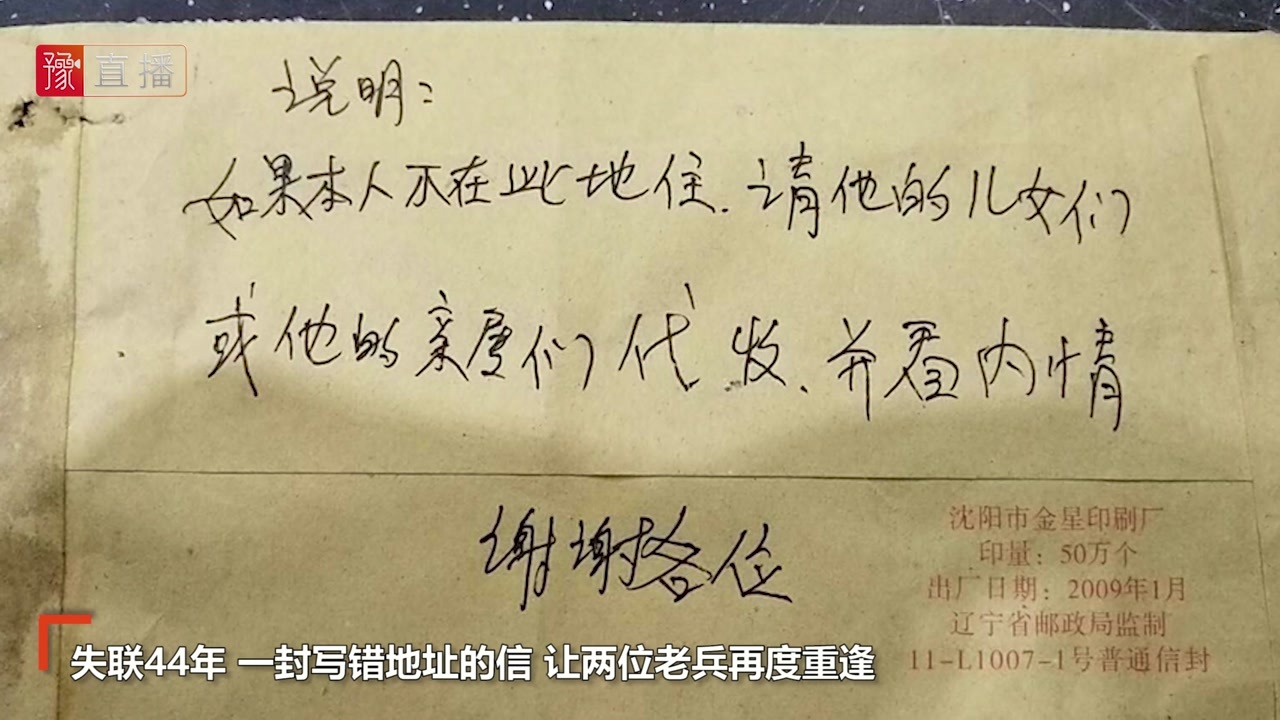 豫直播
说明：
如果本人不在此地住.请他的儿女们
或他的亲属们代收、并看内情
谢谢各位
沈阳市金星印刷厂
印量：50万个
出厂日期：2009年1月
辽宁省邮政局监制
11-L1007-1号普通信封
失联44年 一封写错地址的信 让两位老兵再度重逢